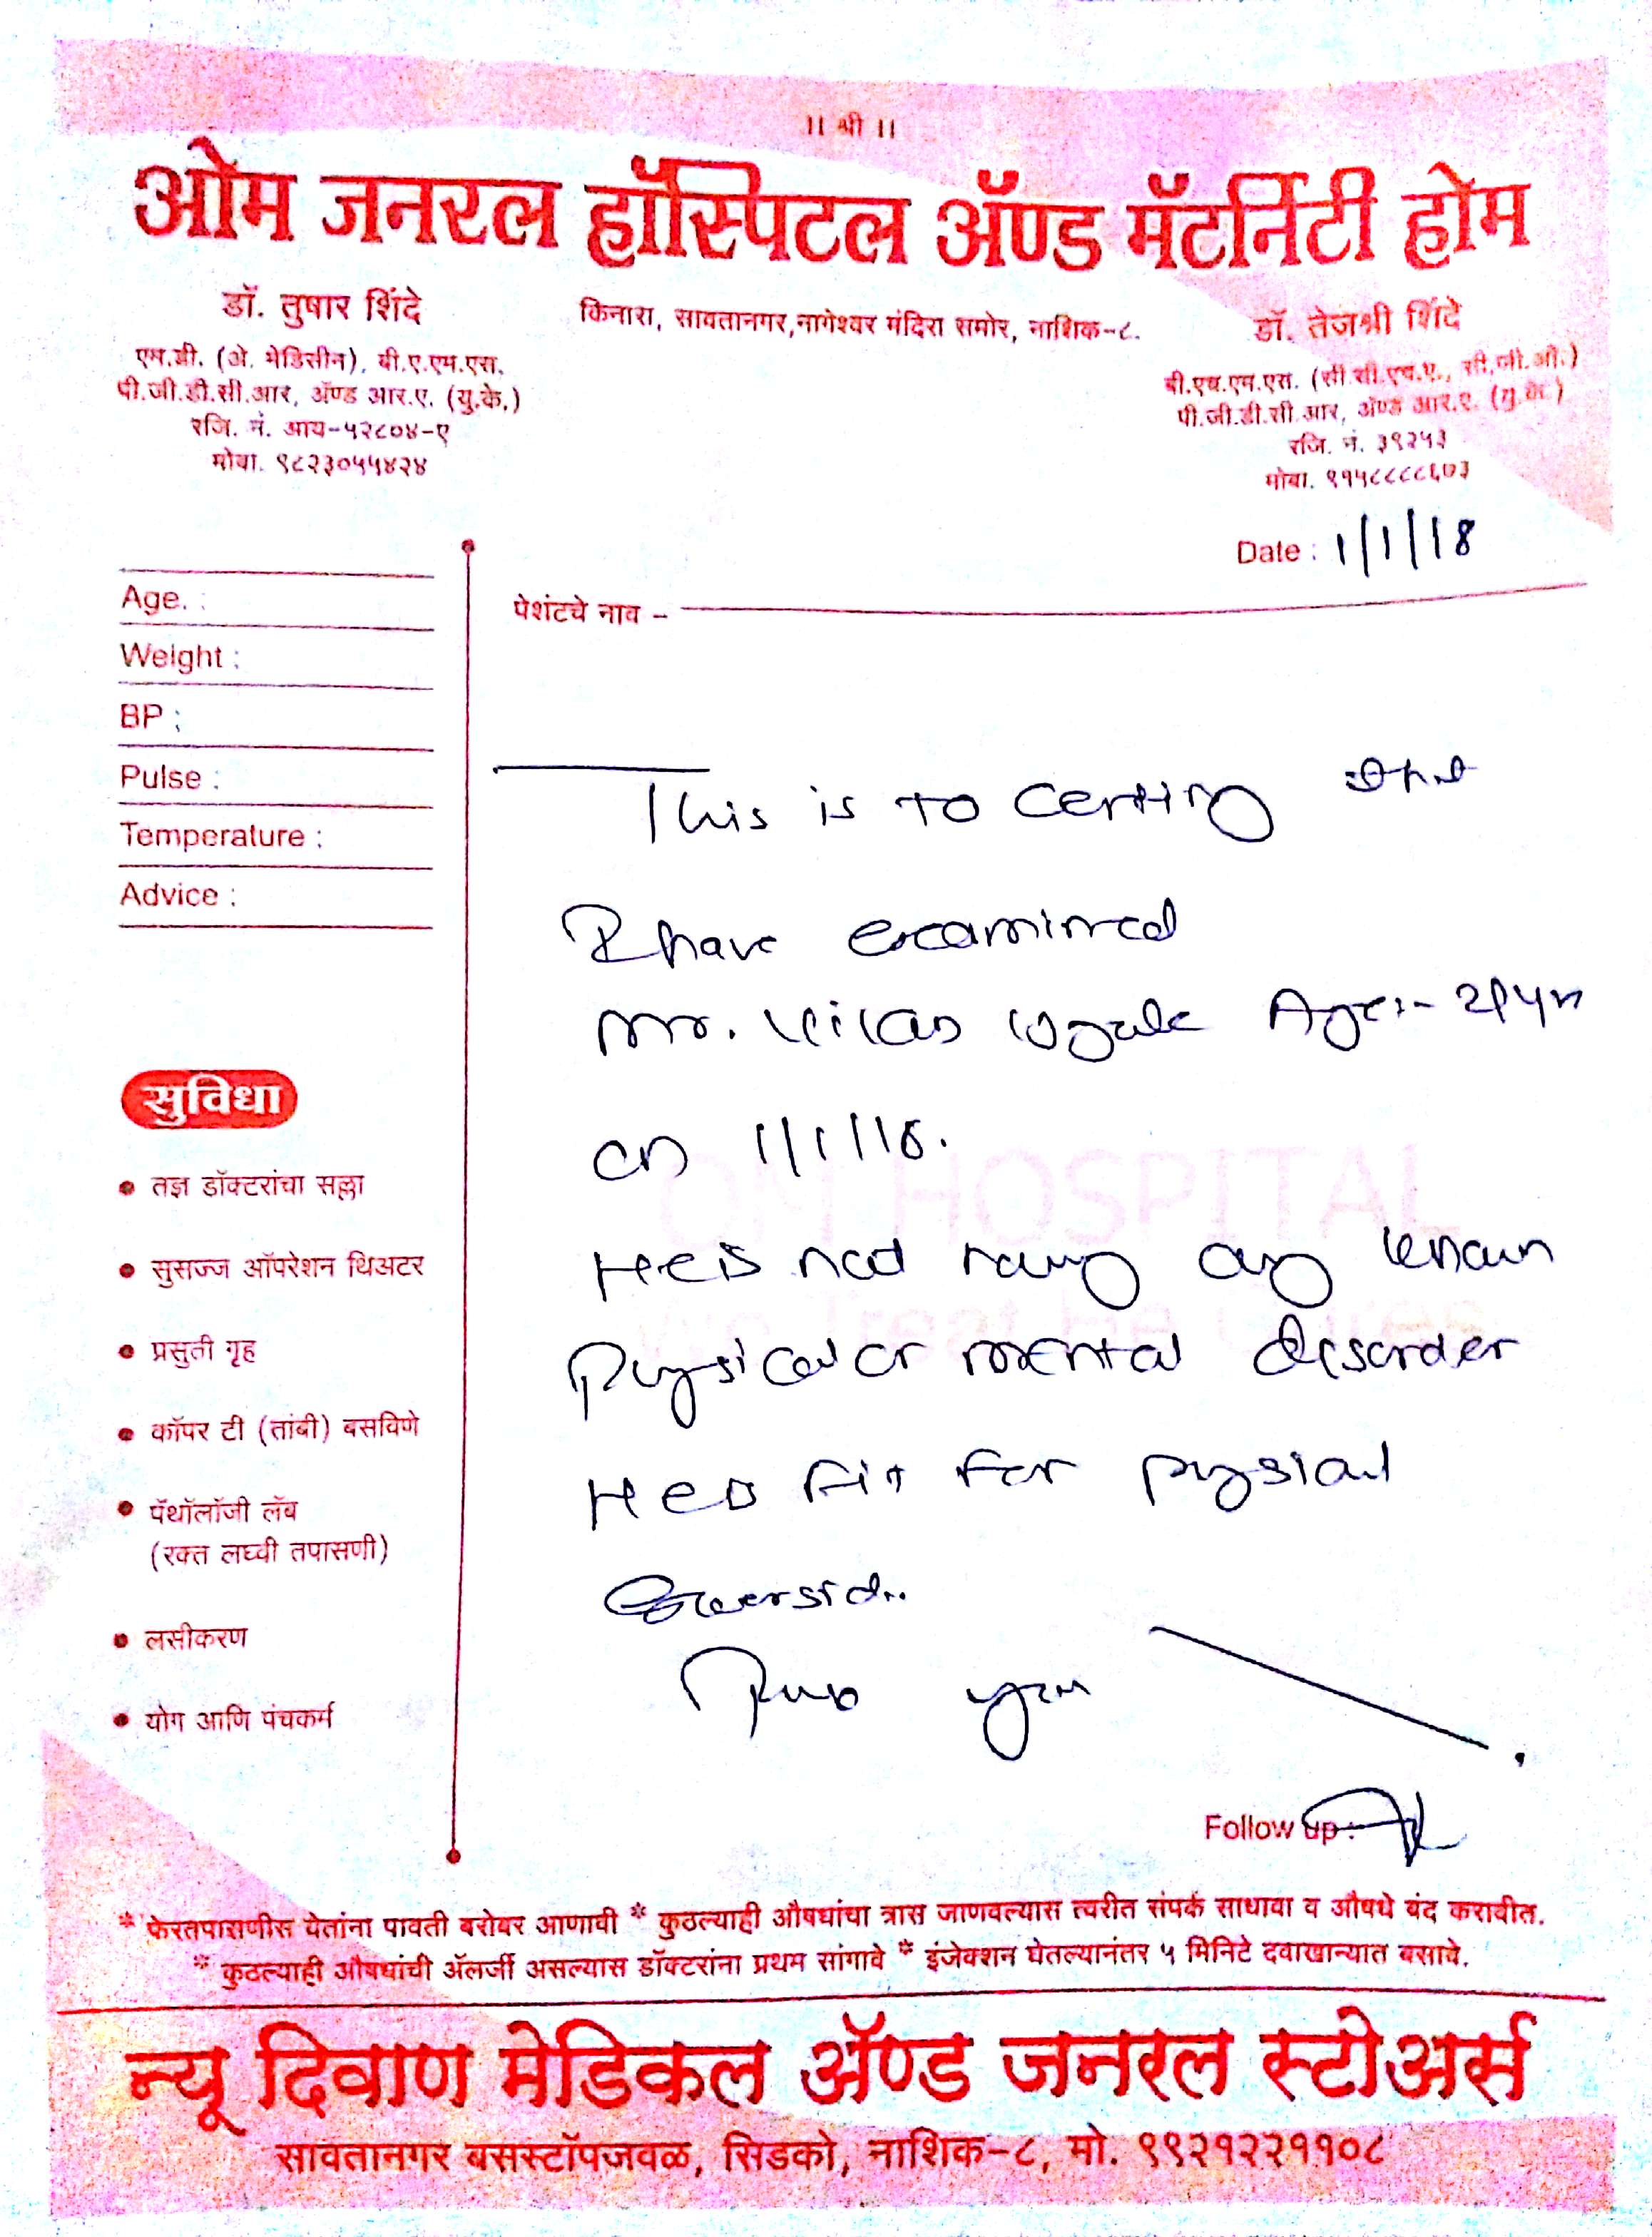 ॥ श्री ॥
ओम जनरल हॉस्पिटल ॲण्ड मॅटर्निटी होम
डॉ. तुषार शिंदे
एम.डी. (अे. मेडिसीन), बी.ए.एम.एस.
पी.जी.डी.सी.आर, ॲण्ड आर.ए. (यु.के.)
रजि. नं. आय-५२८०४-ए
मोबा. ९८२३०५५४२४
किनारा, सावतानगर,नागेश्वर मंदिरा समोर, नाशिक-८.
डॉ. तेजश्री शिंदे
बी.एच.एम.एस. (सी.सी.एच.ए., सी.जी.ओ.)
पी.जी.डी.सी.आर, ॲण्ड आर.ए. (यु.के.)
रजि. नं. ३९२५३
मोबा. ९१५८८८८६७३
Date : 1/1/18
Age. :
Weight :
BP :
Pulse :
Temperature :
Advice :
पेशंटचे नाव -
This is to certify that
I have examined
Mr. Vikas Ugale Age:-
on 1/1/18.
He is not having any known
Physical or mental disorder
He is fit for physical
सुविधा
• तज्ञ डॉक्टरांचा सल्ला
• सुसज्ज ऑपरेशन थिअटर
• प्रसुती गृह
• कॉपर टी (तांबी) बसविणे
• पॅथॉलॉजी लॅब
(रक्त लघ्वी तपासणी)
• लसीकरण
• योग आणि पंचकर्म
OM HOSPITAL
We Treat He Cures
Follow up :
* फेरतपासणीस येतांना पावती बरोबर आणावी * कुठल्याही औषधांचा त्रास जाणवल्यास त्वरीत संपर्क साधावा व औषधे बंद करावीत.
* कुठल्याही औषधांची ॲलर्जी असल्यास डॉक्टरांना प्रथम सांगावे * इंजेक्शन घेतल्यानंतर ५ मिनिटे दवाखान्यात बसावे.
न्यू दिवाण मेडिकल ॲण्ड जनरल स्टोअर्स
सावतानगर बसस्टॉपजवळ, सिडको, नाशिक-८, मो. ९९२१२२११०८